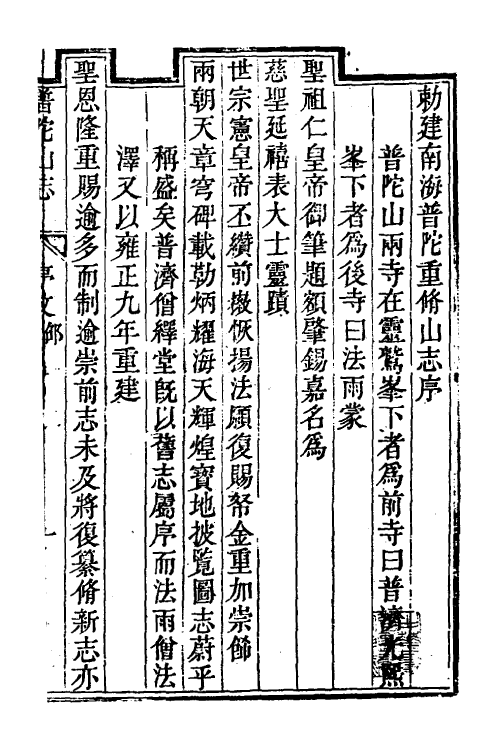 勅建南海普陀重脩山志序
普陀山兩寺在靈鷲峯下者爲前寺曰普濟光熙
峯下者爲後寺曰法雨蒙
聖祖仁皇帝御筆題額肇錫嘉名爲
慈聖延禧表大士靈蹟
世宗憲皇帝丕纘前徽恢揚法願復賜帑金重加崇飾
兩朝天章穹碑載勒炳耀海天輝煌寶地披覽圖志蔚乎
稱盛矣普濟僧釋堂旣以舊志屬序而法雨僧法
澤又以雍正九年重建
聖恩隆重賜逾多而制逾崇前志未及將復纂脩新志亦
普陀山志
序文
一